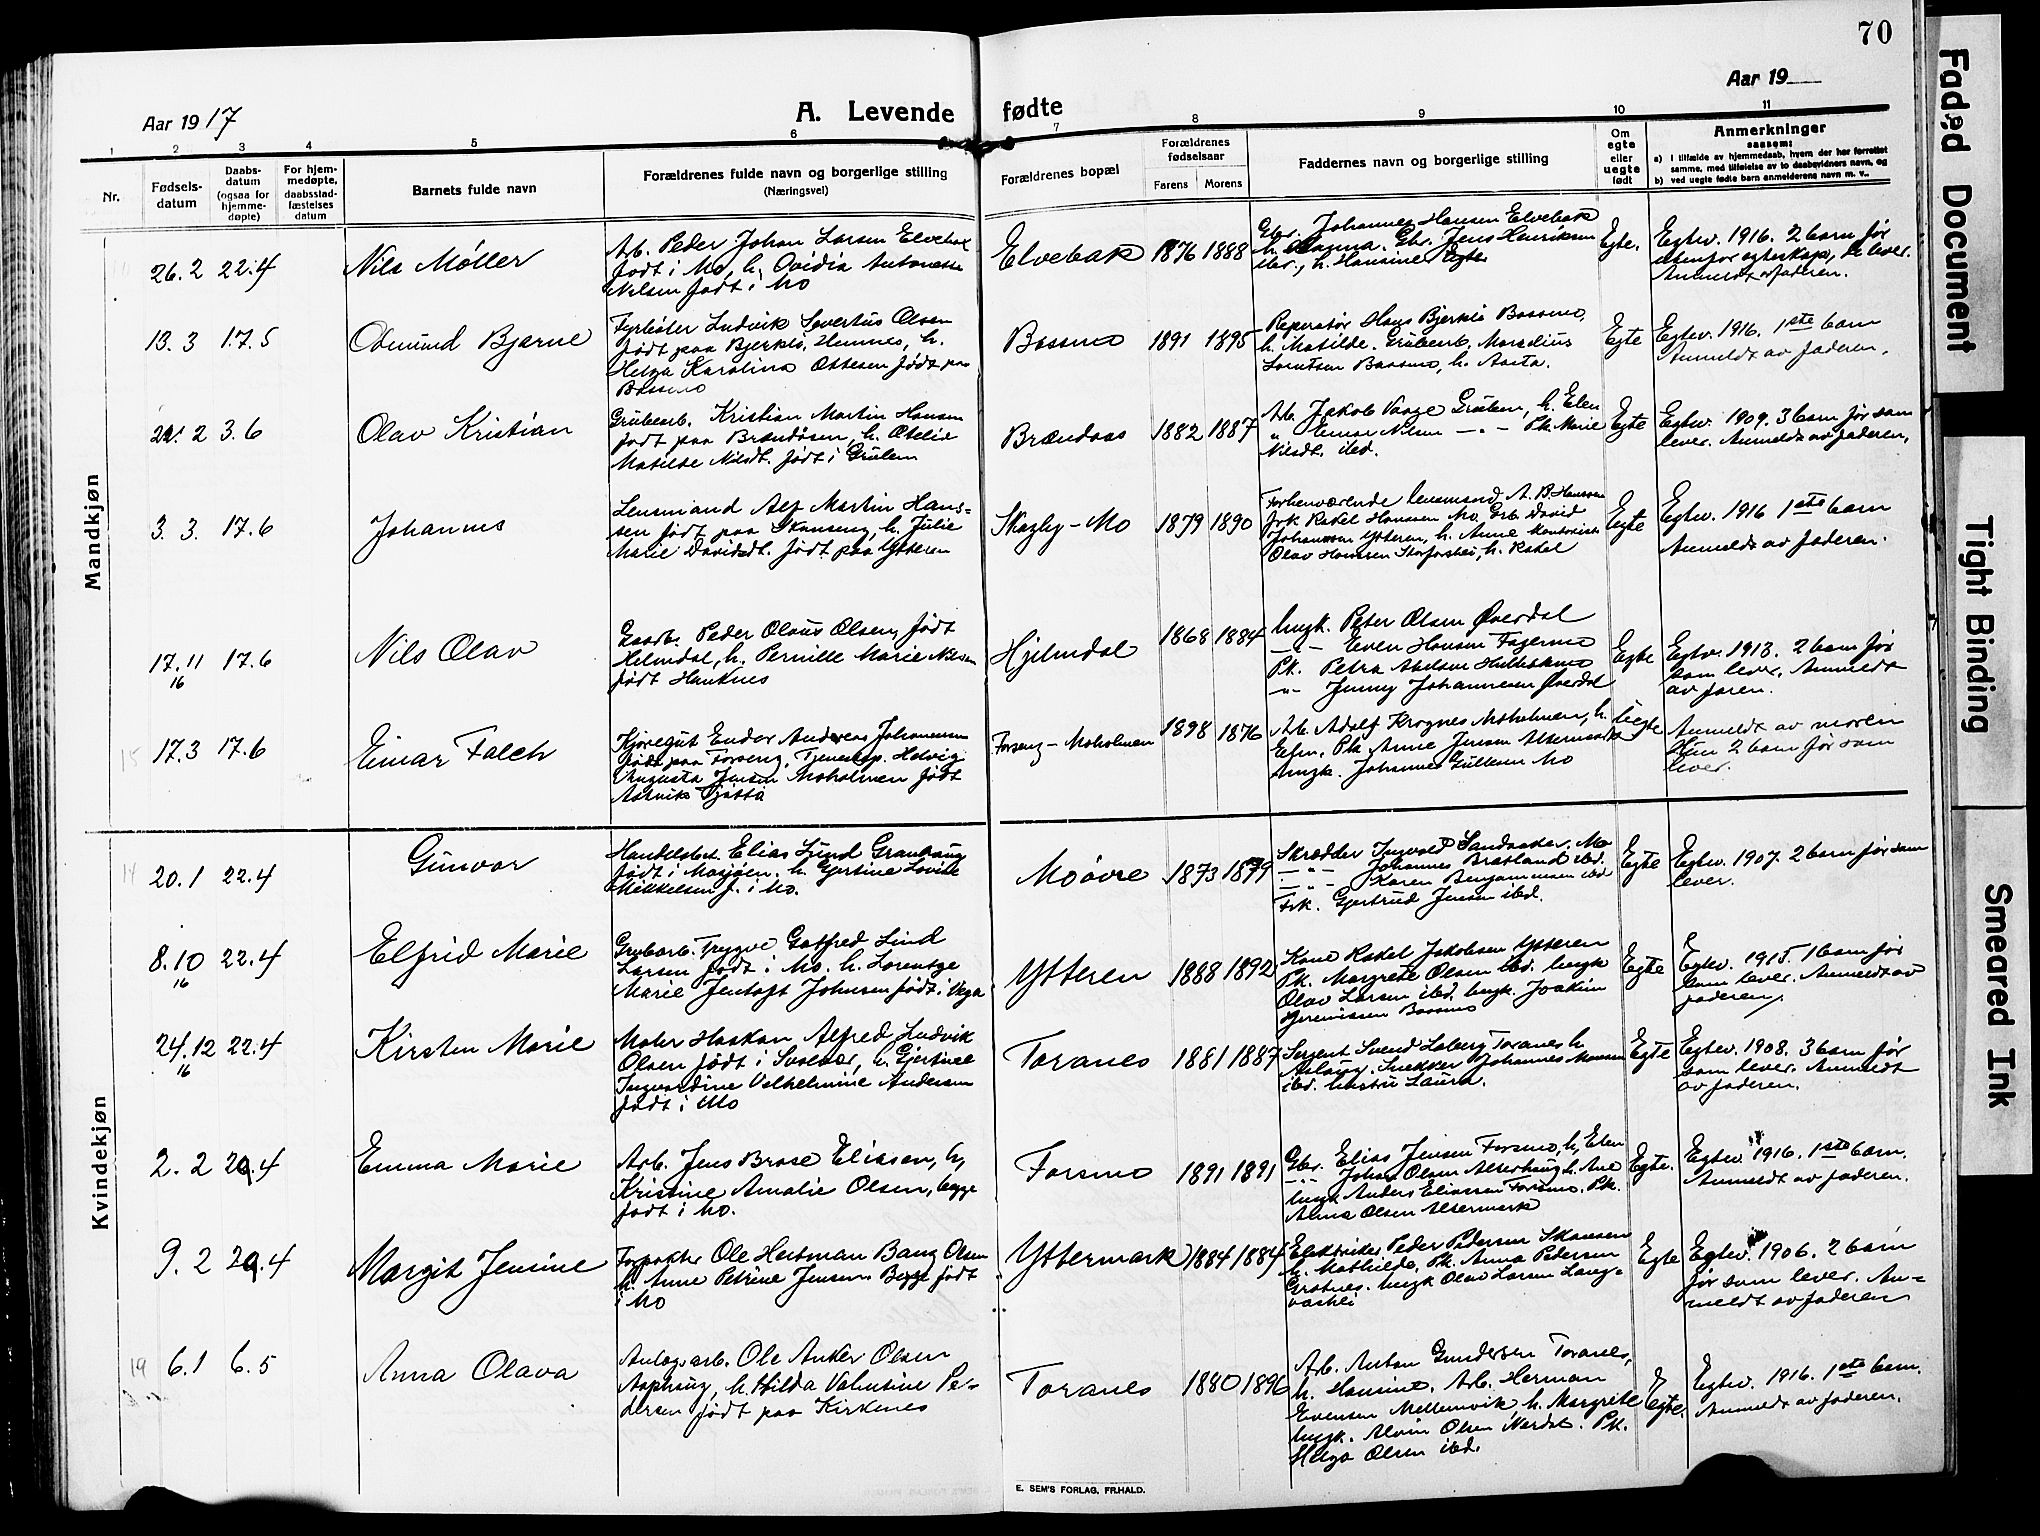 70
Aar 1917
A. Levende fødte
Aar 19
1 2 3 4 5 6 7 8 9 10 11
Nr.
Fødsels-
datum
Daabs-
datum
(ogsaa for
hjemme-
døpte)
For hjem-
medøpte,
daabsstad-
fæstelses
datum
Barnets fulde navn
Forældrenes fulde navn og borgerlige stilling
(Næringsvei)
Forældrenes bopæl
Forældrenes
fødselsaar
Farens Morens
Faddernes navn og borgerlige stilling
Om
egte
eller
uegte
født
Anmerkninger
saasom:
a) i tilfælde av hjemmedaab, hvem der har forrettet
samme, med tilføielse av to daabsvidners navn, og
b) ved uegte fødte barn anmelderens navn m. v..
Mandkjøn
26.2 22.4
Nils Møller
Arb. Peder Johan Larsen Elvebak
født i Mo, h. Ovidia Antonette
Nilsen født i Mo
Elvebak
1876 1888
Gbr. Johannes Hansen Elvebak
h. Magna. Gbr. Jens Henriksen
ibr., h. Hansine
Egte.
Egtev. 1916. 2 barn før
utenfor egteskap, de lever.
Anmeldt av faderen.
13.3 17.5
Obmund Bjarne
Fyrbøter Ludvik Severtus Olsen
født paa Bjerkli, Hemnes, h.
Helga Karolina Ottesen født paa
Bossmo
Bossmo
1891 1895
Reperatør Hans Bjerkli Bossmo,
h. Matilde. Grubearb. Morselius
Lorntsen Bossmo, h. Aasta.
Egte
Egtev. 1916. 1ste barn
Anmeldt av faderen.
21.2 3.6
Olav Kristian
Grubearb. Kristian Martin Hansen
født paa Brendåsen, h. Otelie
Matilde Nilsdt. født i Gruben
Brændaas
1882 1887
Arb. Jakob Vaage Gruben, h. Elen
" Einar Nilsen - " - Pk. Marie
Nilsdt. ibd.
Egte
Egtev. 1909. 3 barn før som
lever. Anmeldt av faderen.
3.3. 17.6
Johannes
Lensmand Alf Martin Hans-
sen født paa Skanseng, h. Julie
Marie Davidsdt. født paa Ytteren
Skogly - Mo
1879 1890
Forhenværende lensmand A. B. Hanssen
frk Rakel Hanssen Mo. Grb. David
Johanssen Ytteren, h. Anne Kontorist
Olav Hanssen Storforshei, h. Rakel
Egte
Egtev. 1916 1ste barn
Anmeldt av faderen.
17.11 17.6
16
Nils Olav
Gaarb. Peder Olaus Olsen, født
Helmdal, h. Pernille Marie Nilsen
født Hauknes
Hjelmdal
1868 1884
Ungk. Peter Olsen Øverdal
- " - Even Hansen Fagermo
Pk. Petra Abelsen
- " - Jenny Johannesen Øverdal
Egte
Egtev. 1913. 2 barn før
som lever. Anmeldt
av faren.
15 17.3 17.6
Einar Falch
Kjøregut Endor Andreas Johannesen
født paa Forseng, Tjenestep. Helvig
Augusta Jensen Moholmen født
Tjøtta
Forseng - Moholmen
1898 1876
Arb. Adolf Krognes Moholmen, h.
Elen. Pk. Anne Jensen Altermark
Ungk. Johannes Gullesen Mo
Uegte
Anmeldt av moren
Hun 2 barn før som
lever.
Kvindekjøn
14 20.1 22.4
Gunvor
Handelsbet. Elias Lund Granhaug
født i Mosjøen. h. Gjertine Lovise
Mikkelsen f. i Mo.
Moøvre
1873 1879
Skrædder Ingvald Sandsaker, Mo
- " - Johannes Bratland ibd.
- " - Karen Benjaminsen ibd
Frk. Gjertrud Jensen ibd.
Egte
Egtev. 1907. 2 barn før som
lever.
8.10 22.4
16
Elfrid Marie
Grubarb. Trygve Gotfred Lind
Larsen født i Mo. h. Lorentze
Marie Jentoft Johnsen født i Vega
Ytteren
1888 1892
Kone Rakel Jakobsen Ytteren
Pk. Margrete Olsen ibd. Ungk
Olav Larsen ibd. Ungk. Joakim
Jeremiassen Bossmo
Egte
Egtev. 1915. 1 barn før
som lever. Anmeldt av
faderen.
24.12 22.4
16
Kirsten Marie
Maler Haakon Alfred Ludvik
Olsen født i Svolvær, h. Gjertine
Ingvardine Velhelmine Andersen
født i Mo
Toranes
1881 1887
Serjent Svend Loberg Toranes h
Aslaug. Snekker Johannes Monsen
ibd. hustru Laura.
Egte
Egtev. 1908. 3 barn før
som lever. Anmeldt
av faderen.
2.2 29.4
Emma Marie
Arb. Jens Brose Eliasen, h,
Kristine Amalie Olsen, begge
født i Mo.
Forsmo
1891 1891
Gbr. Elias Jensen Forsmo, h. Elen
- " - Johan Olsen Alterhaug h. Ane
Ungk Anders Eliassen Forsmo, Pk.
Alma Olsen Altermark
Egte.
Egtev. 1916. 1ste barn.
Anmeldt av faderen.
9.2 29.4
Margit Jensine
Forpakter Ole Hartman Bang Olsen
h. Anne Petrine Jensen Begge født
i Mo
Yttermark
1884 1884
Elektriker Peder Pedersen Skansen
h. Mathilde, Pk. Anna Pedersen
Grotnes. Ungk Olav Larsen Lang-
vashei
Egte
Egtev. 1906. 2 barn
før som lever. An-
meldt av faderen
19 6.1 6.5
Anna Olava
Anlægsarb. Ole Anker Olsen
Asphaug, h. Hilda Valentine Pe-
dersen født paa Kirkenes
Toranes
1880 1896
Arb. Anton Gundersen Toranes,
h. Hansine. Arb. Herman
Evensen Mellemvik h. Margrete
Ungk. Alvin Olsen Nordst. Pk.
Helga Olsen ibd.
Egte.
Egtev. 1916. 1ste barn.
Anmeldt av faderen.
E. SEM'S FORLAG, FR.HALD.
Faded Document
Tight Binding
Smeared Ink